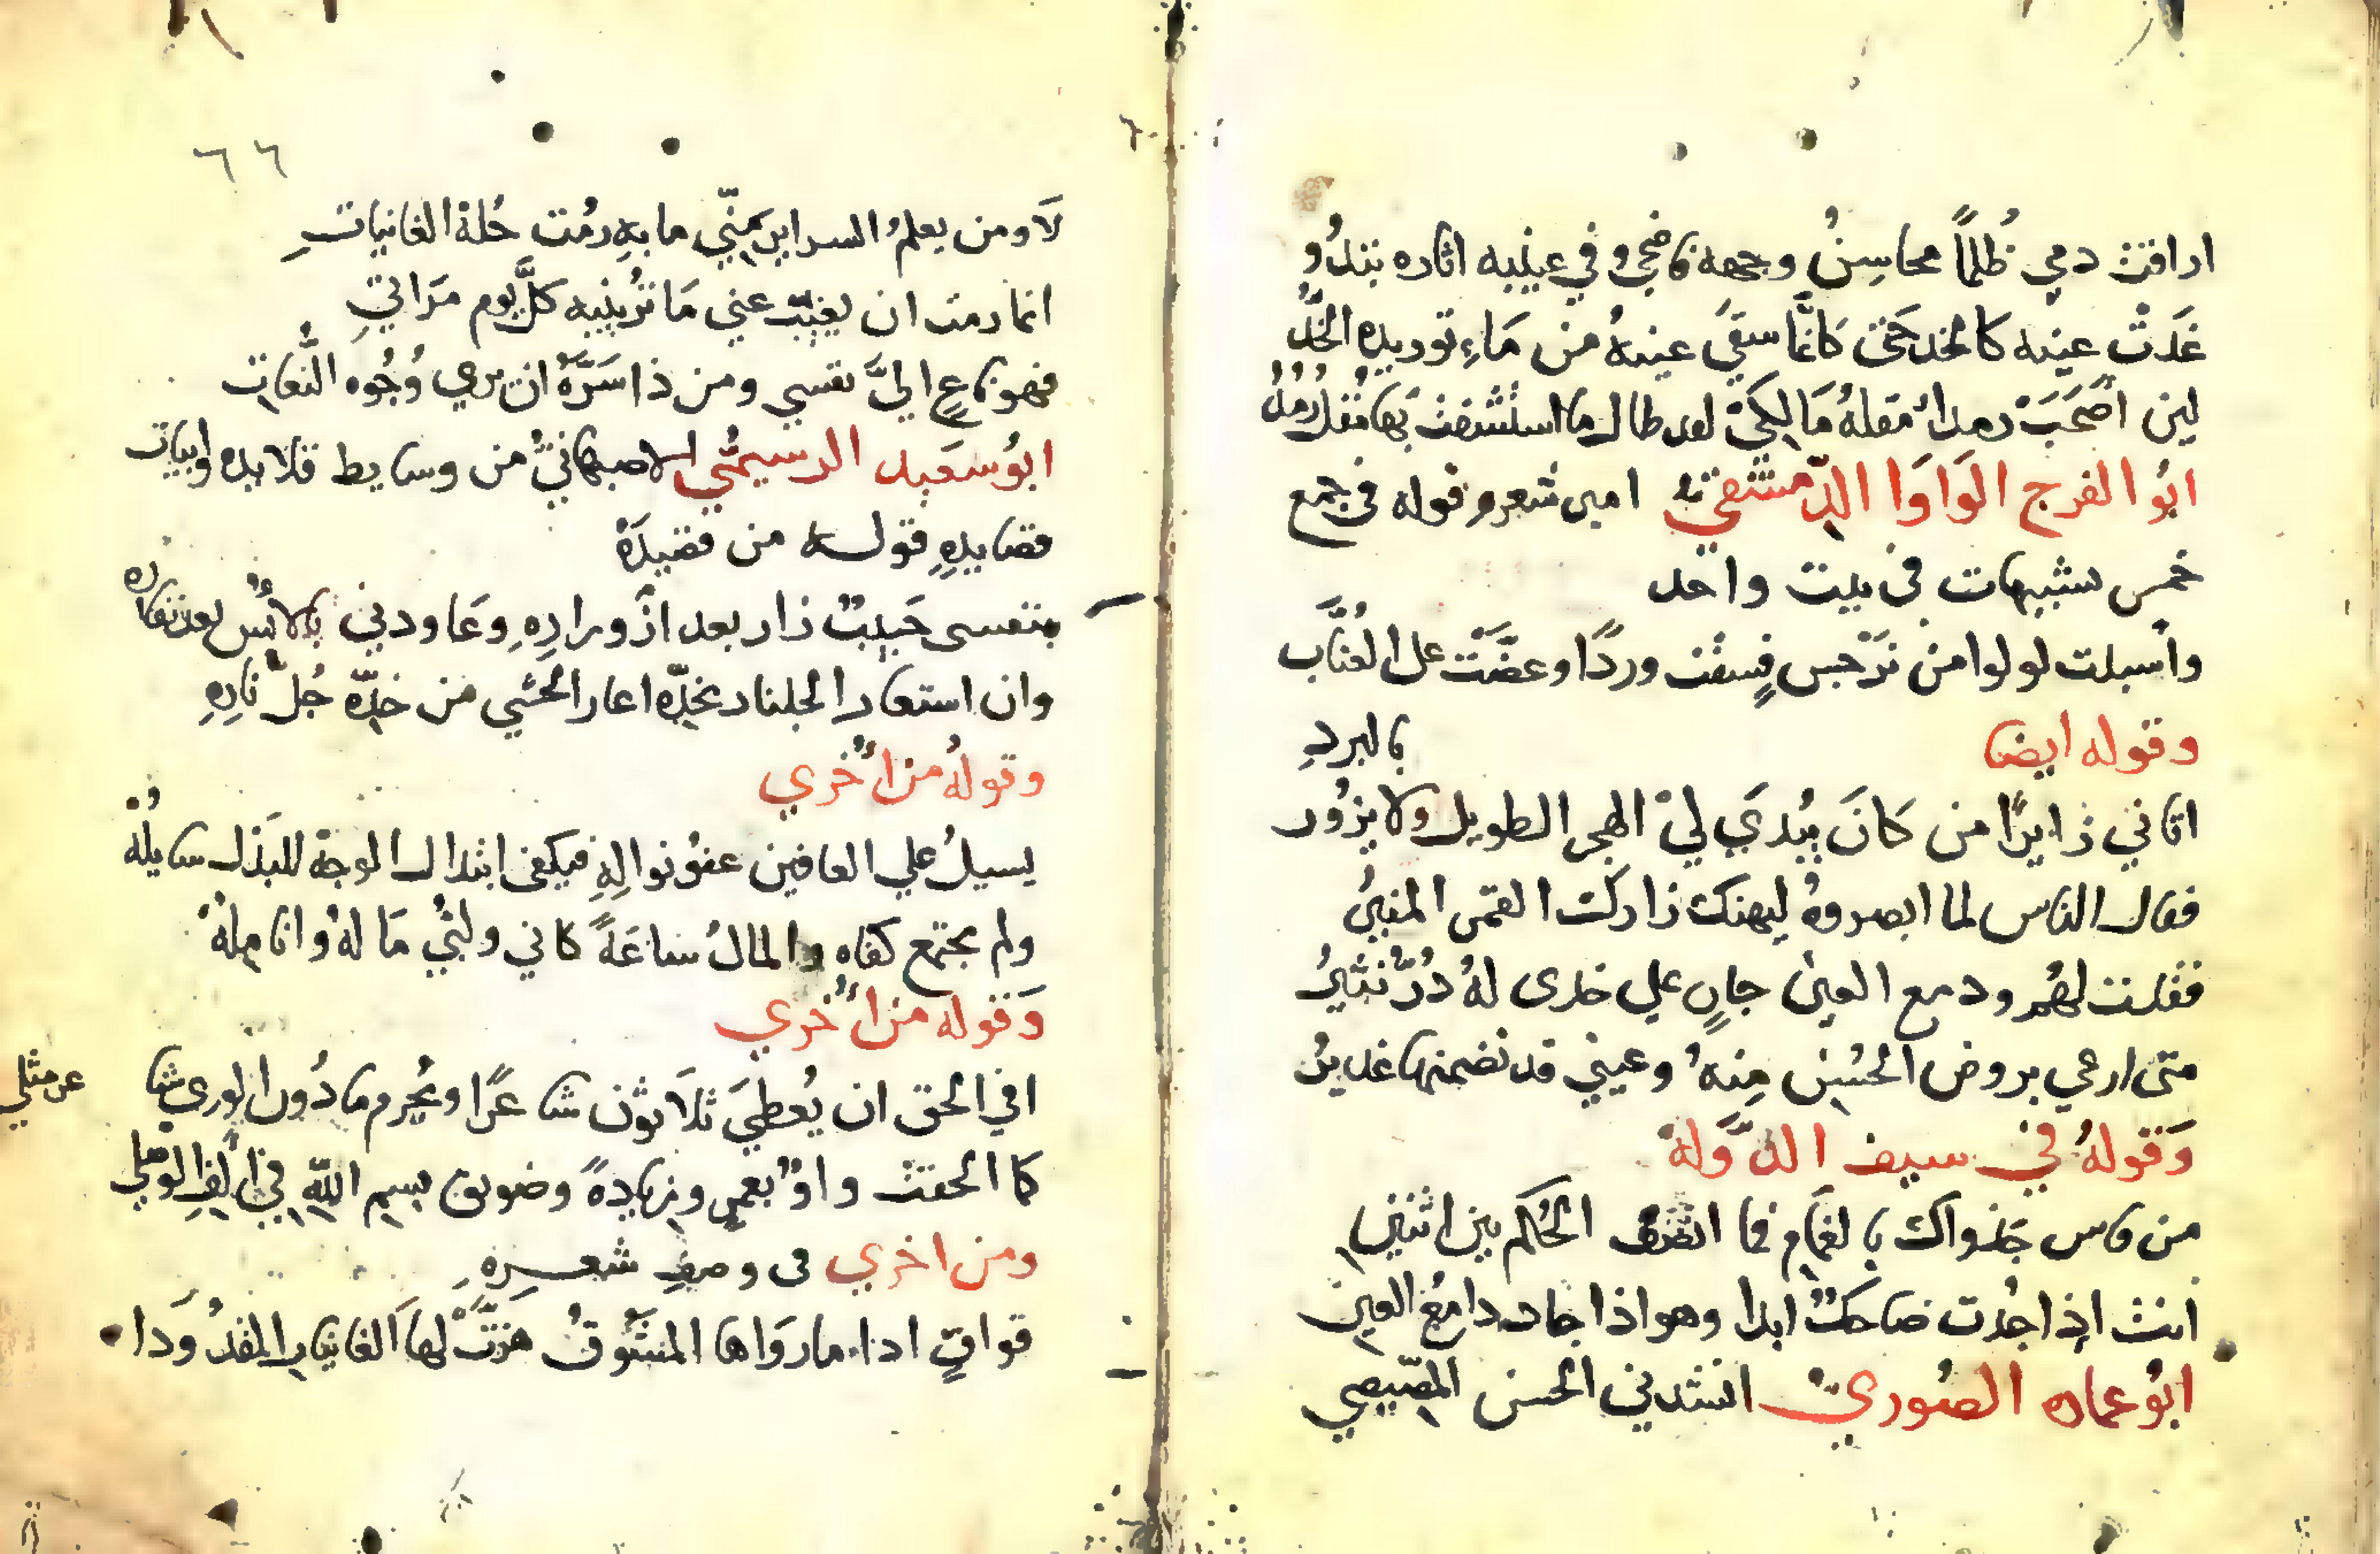 اراقت دمي ظلمًا محاسِنُ وجهه فاضحي وفي عينيه اثاره تبدُو
غَدَتْ عينه كالخد حَتى كَانمَّا سقيَ عينهُ من مَاءِ توريده الخدُّ
لين اصْحَبَتْ رمدا مُقلهُ مَالكي لقد طال ما استشفت بها مُقل رُمْدُ
ابُو الفرج الوَاوَا الدّمشقي امير شعره قوله في جمع
خمس تشبيهات في بيت واحد
واسبلت لولوا من نرْجس فسقت وردًا وعضّتْ على العُنَّاب
بالبردِ
وقوله ايضا
اتاني زايرًا من كَانَ يُبدي لي الهجر الطويل ولا يزُور
فقال الناس لما ابصروهُ ليهنك زارك القمر المنيرُ
فقلت لهُم ودمع العين جارٍ على خدى لهُ دُرّ نثيرُ
متى ارعي بروض الحُسْن مِنهُ وعيني قد تضمنها غديرُ
وَقولهُ في سيف الدَّولة
من قاس جَدواك بالغمَام فما انصف الحُكم بين اثنين
انت اذا جُدت ضاحكٌ ابدا وهو اذا جاد دامعُ العين
ابُو عماره الصُوري انشدني الحسن المصّيصي
٦٦
لَا ومن يعلمُ السراير منّي ما بهِ رُمْت خُلة الغانياتِ
انما رمت ان يغيّب عني مَا تُرينيه كلَّ يوم مَراتي
فهو ناعٍ اليَّ نفسي ومن ذا سَرَّهُ ان يرى وُجُوه النُّعات
ابُو سَعيد الرسيمُي الاصبهانيُّ من وسايط قلايده وابيات
قصايدهِ قوله من قصيدَة
بنفسى حَبيبٌ زار بعد ازورارِهِ وعَاودني بالانُس بعد نفاره
وان استعار الجلنار بخدّه اعار الحشي من خدّه جُلّ نارِهِ
وقولهُ من اُخري
يسيلُ علي العافين عفوُ نوالِهِ فيكفى ابتدال الوجه للبَذل سايلُهْ
ولم يجتمع كفاه والمالُ ساعَةً كاني ولثْمي مَا لهُ وانامِلُهْ
وَقوله من اُخري
افي الحق ان يُعطيَ ثلاَثون شاعرًا ويُحرم ما دُون الوري شاعر مثلي
كما الحقت واوٌ بعمرٍو زيادةً وضويق بسم اللّه في الف الوَصْلِ
ومن اخري فى وصفِ شعرِهِ
قوافٍ اذا ما روَاها المشُوقُ هَزَّتْ لها الغانيات القدُودَا